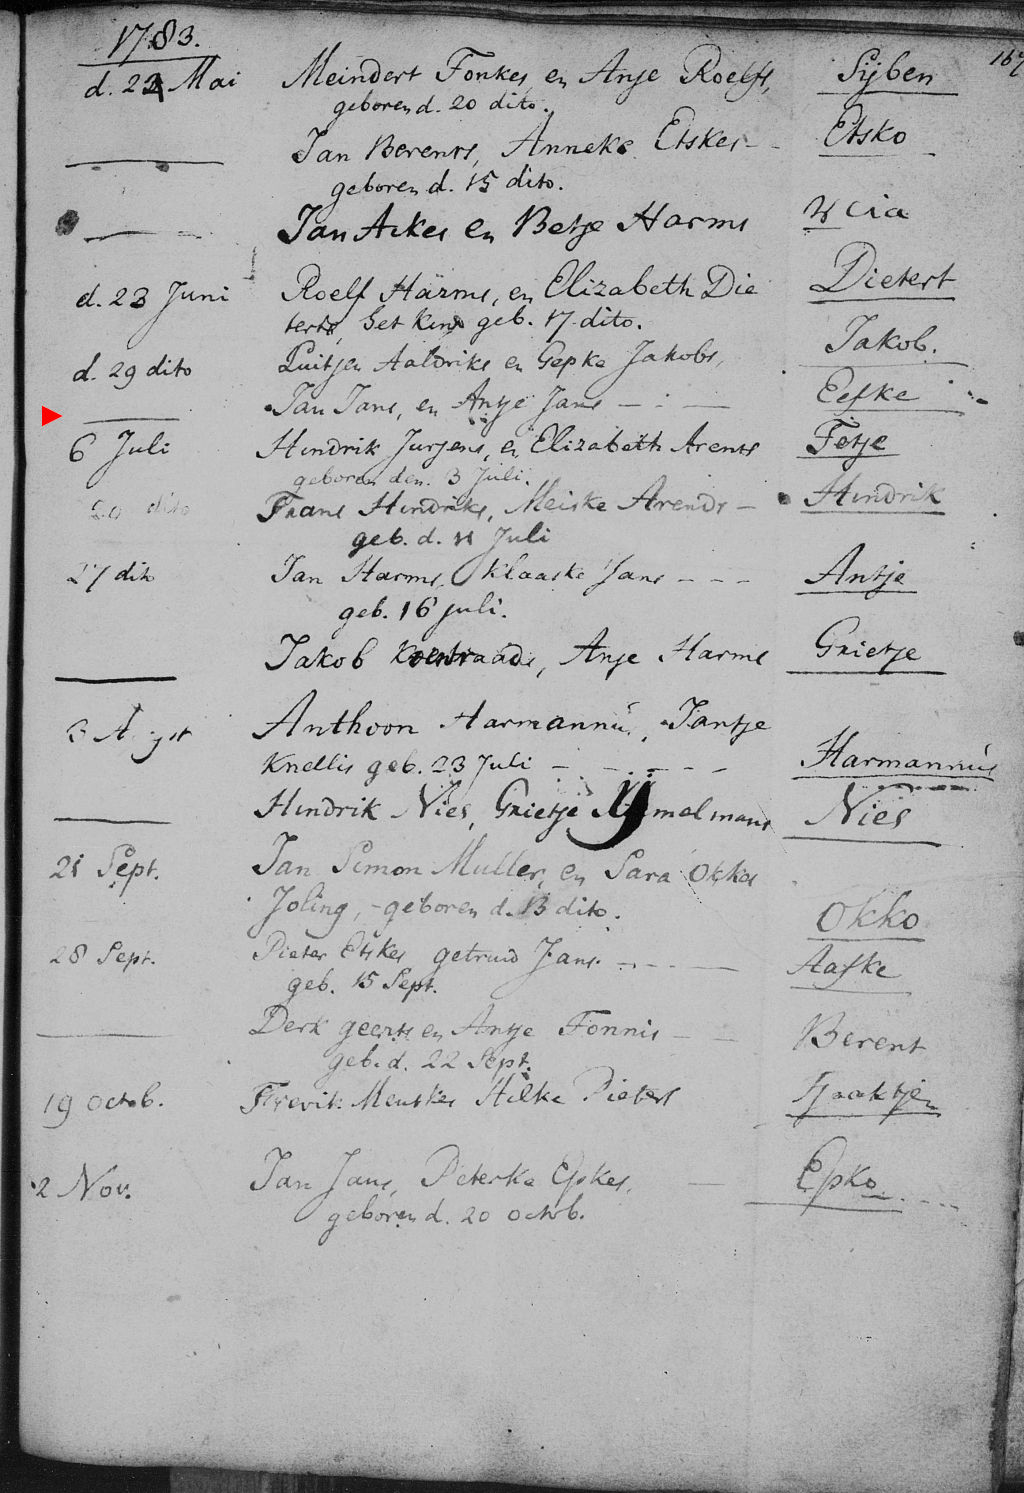 1783.
167
d. 22 Mai Meindert Fonkes en Anje Roelfs, Sijben
geboren d. 20 dito.
Jan Berents, Anneke Etskes - Etsko
geboren d. 15 dito.
Jan Ackes en Betje Harms
d. 23 Juni Roelf Harms, en Elizabeth Die Dietert
terts, het kind geb. 17 dito.
d. 29 dito Luitjen Aaldriks en Gepke Jakobs, Jakob.
Jan Jans, en Antje Jans - - - Eefke
6 Juli Hindrik Jurjens, en Elizabeth Arents Fetje
geboren den. 3 Juli.
20 dito Frans Hindriks, Meiske Arends - Hindrik
geb. d. 11 Juli
27 dito Jan Harms, Klaaske Jans - - - Antje
geb. 16 juli.
Jakob Koenraads, Anje Harms Grietje
3 August Anthoon Harmannus, Jantje
Knellis geb. 23 Juli - - - - - Harmannus
Hindrik Nies, Grietje Nies
21 Sept. Jan Simon Muller, en Sara Okkes
Joling, - geboren d. 13 dito. Okko
28 Sept. Pieter Etskes getruid Jans - - - Aafke
geb. 15 Sept.
Derk geerts en Antje Fonnis - - Berent
geb. d. 22 Sept.
19 octob. Frerik Menskes Hilke Pieters Tjaaktjen
2 Nov. Jan Jans, Peterke Epkes, - Epko
geboren d. 20 octob.